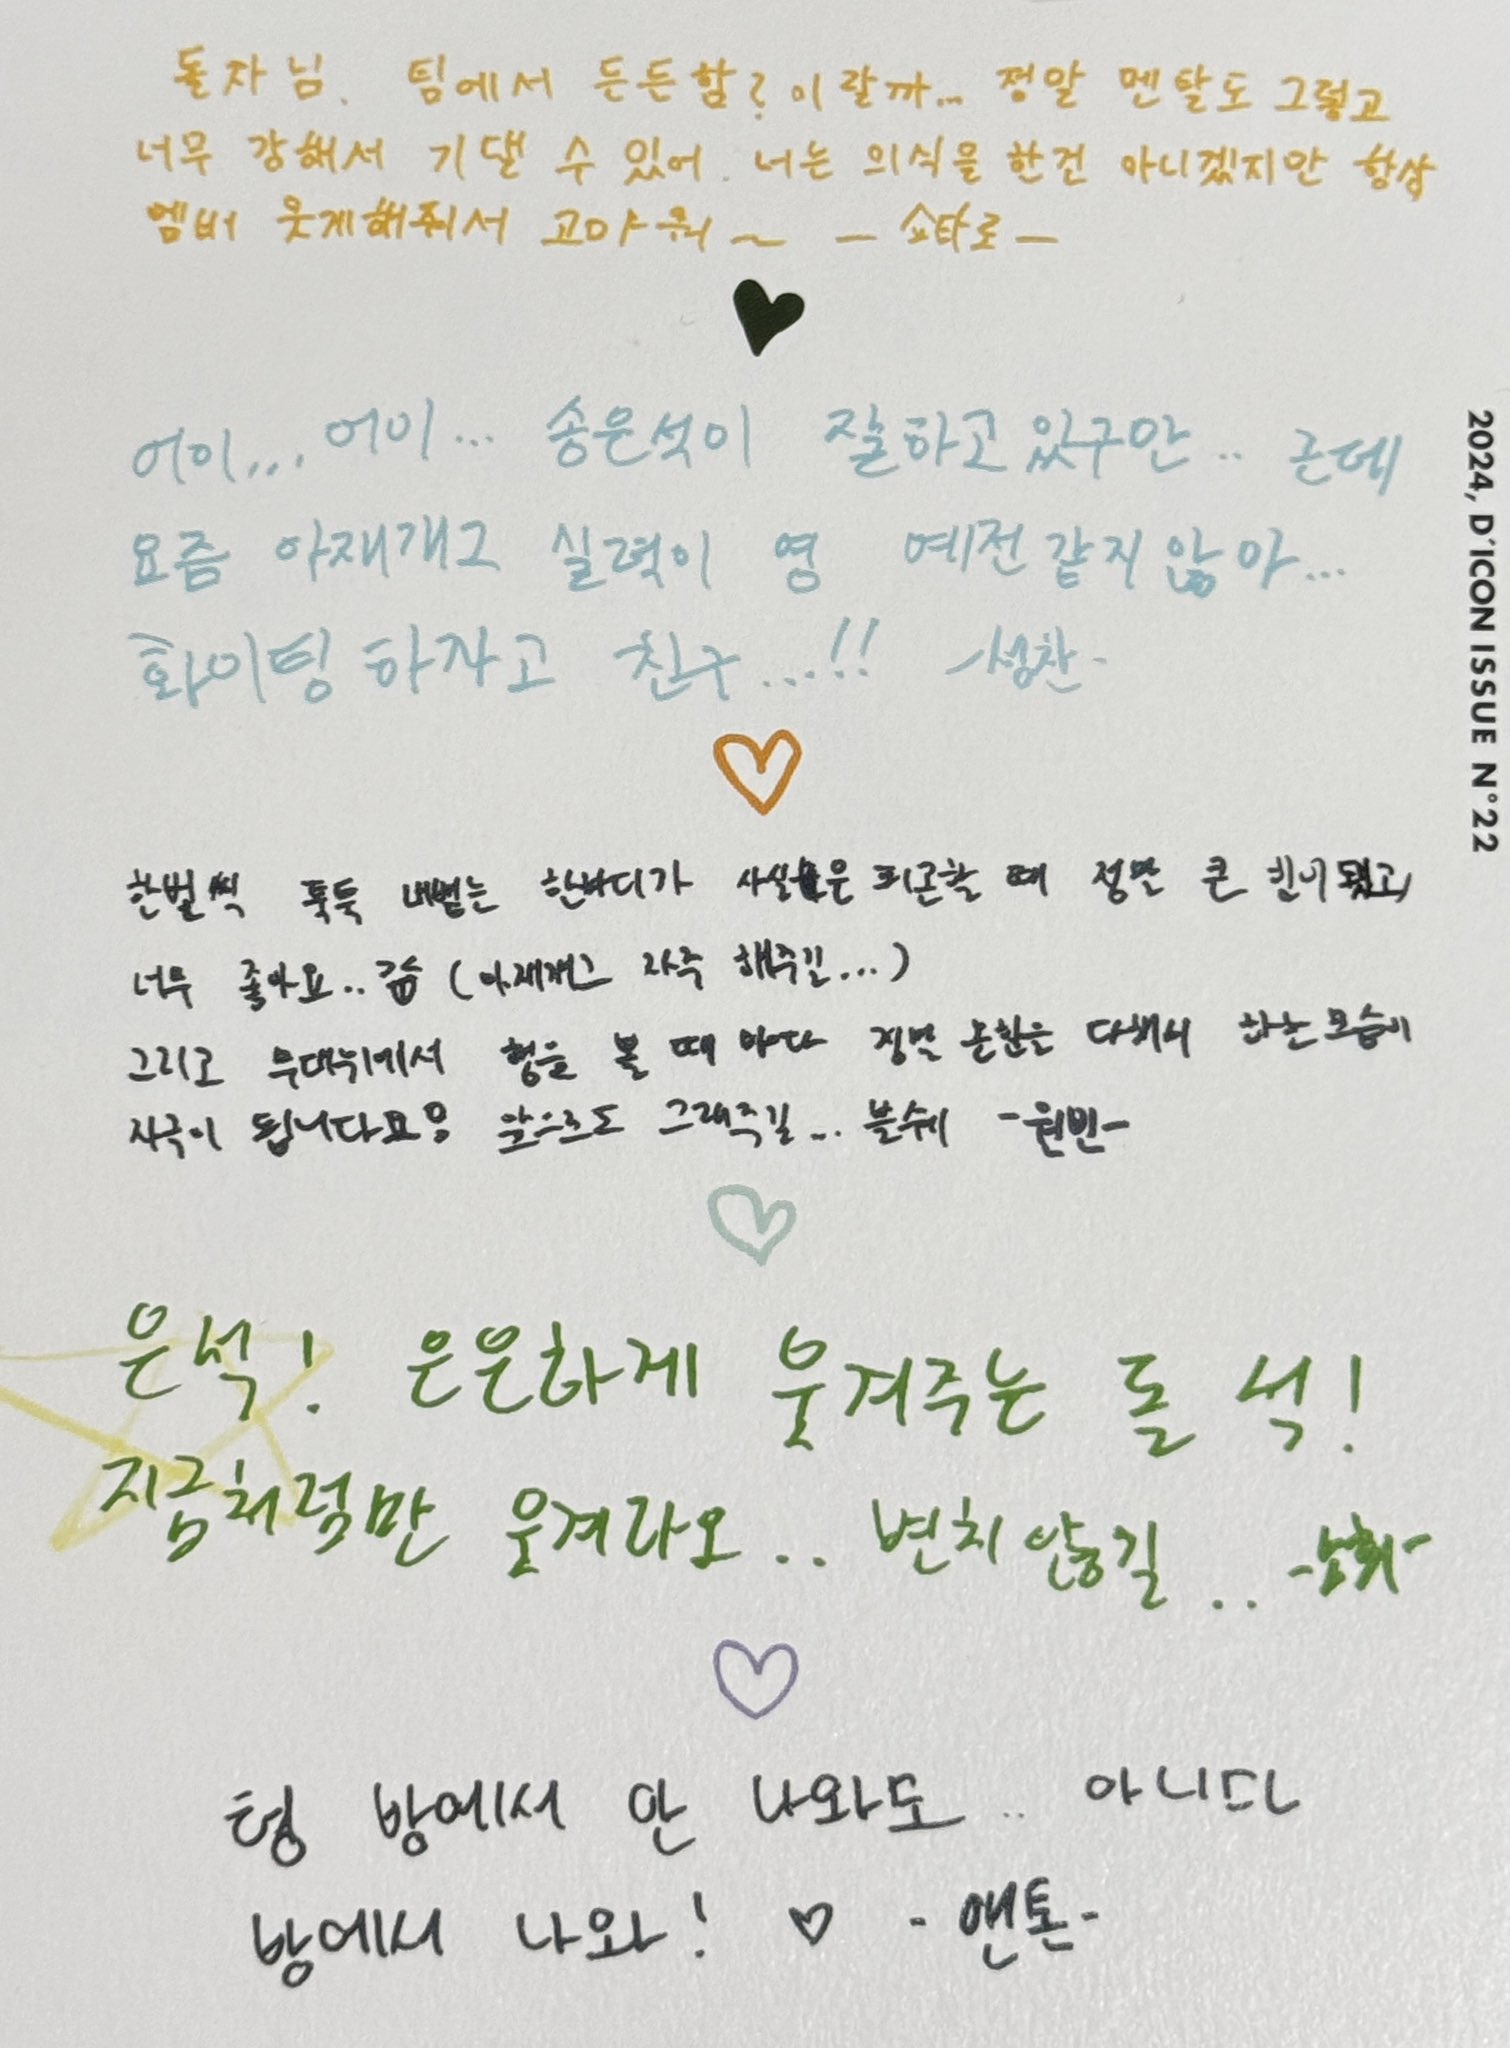 돌자님. 팀에서 든든함? 이랄까... 정말 멘탈도 그렇고
너무 강해서 기댈 수 있어. 너는 의식을 한건 아니겠지만 항상
멤버 웃게해줘서 고마워~ -쇼타로-
어이... 어이... 송은석이 잘하고있구만.. 근데
요즘 아재개그 실력이 영 예전같지않아...
화이팅하자고 친구...!! -성찬-
한번씩 툭툭 내뱉는 한마디가 사실은 피곤할 때 정말 큰 힘이 됐고
너무 좋아요.. (아재개그 자주 해주길...)
그리고 무대위에서 형을 볼 때 마다 정말 최선을 다해서 하는모습이
자극이 됩니다요 앞으로도 그래주길... -원빈-
은석! 은은하게 웃겨주는 돌석!
지금처럼만 웃겨라오.. 변치않길..
텅 방에서 안 나와도.. 아니다
방에서 나와! ♡ -앤톤-
2024, D'ICON ISSUE N°22